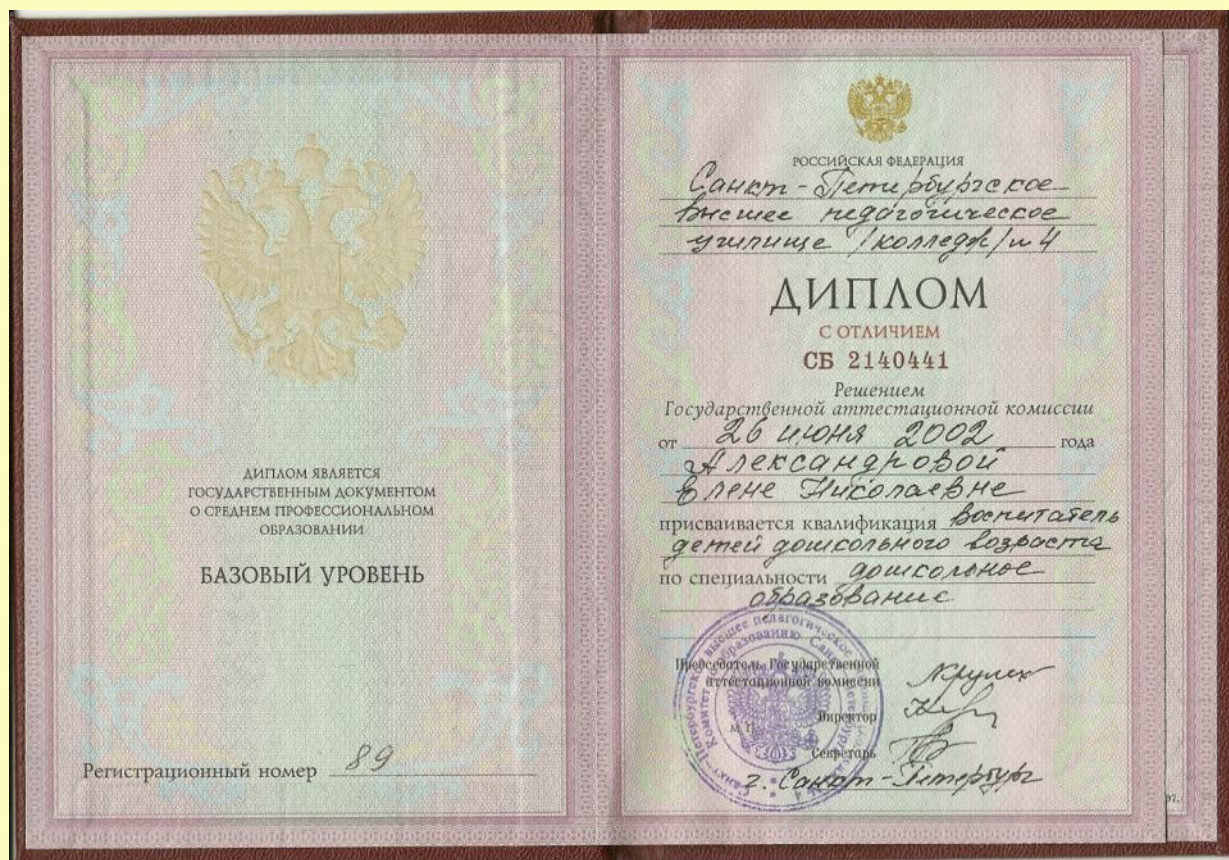 ДИПЛОМ ЯВЛЯЕТСЯ
ГОСУДАРСТВЕННЫМ ДОКУМЕНТОМ
О СРЕДНЕМ ПРОФЕССИОНАЛЬНОМ
ОБРАЗОВАНИИ
БАЗОВЫЙ УРОВЕНЬ
Регистрационный номер 89
РОССИЙСКАЯ ФЕДЕРАЦИЯ
Санкт-Петербургское
высшее педагогическое
училище /колледж/ № 4
ДИПЛОМ
С ОТЛИЧИЕМ
СБ 2140441
Решением
Государственной аттестационной комиссии
от 26 июня 2002 года
Александровой
Елене Николаевне
присваивается квалификация воспитатель
детей дошкольного возраста
по специальности дошкольное
образование
Председатель Государственной
аттестационной комиссии
Директор
М.П.
Секретарь
г. Санкт-Петербург